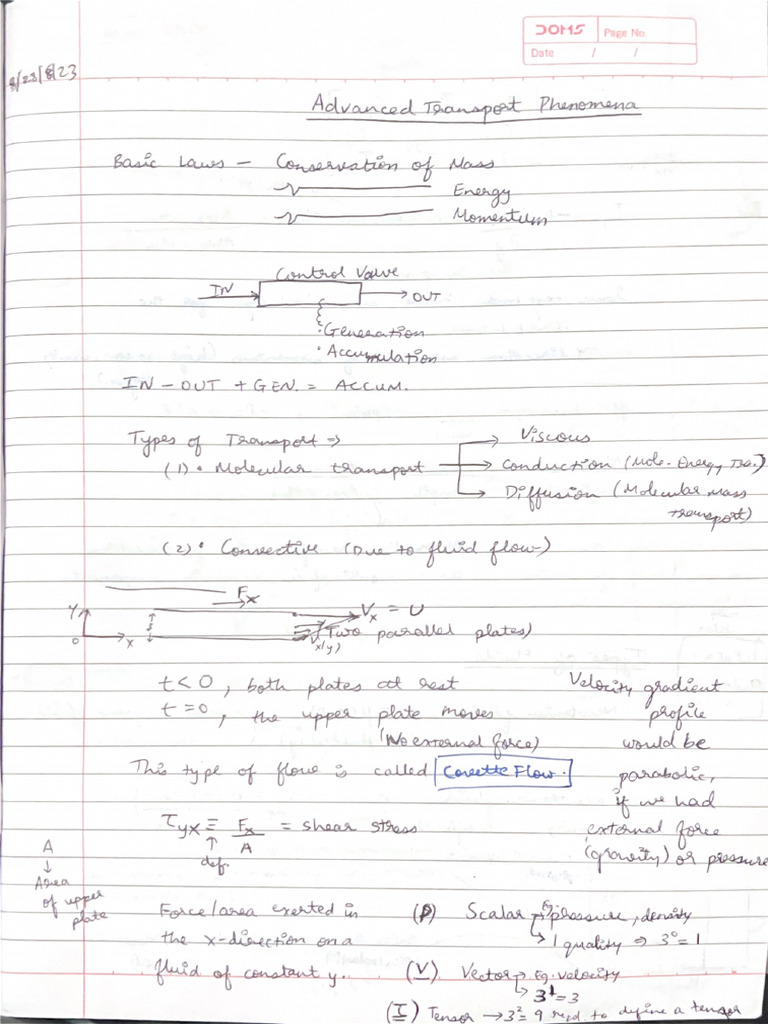 DOMS Page No.
Date / /
8/23/8/23
Advanced Transport Phenomena
Basic Laws - Conservation of Mass
Energy
Momentum
Control Valve
IN
OUT
• Generation
• Accumulation
IN - OUT + GEN. = ACCUM.
Types of Transport ⇒
Viscous
(1) • Molecular transport → Conduction (Mole. Energy Tra.)
Diffusion (Molecular mass
transport)
(2) • Convective (Due to fluid flow)
Fx
Y
Vx = U
O X
Vx(y)
(Two parallel plates)
t < 0, both plates at rest
t = 0, the upper plate moves
(No external force)
This type of flow is called Couette Flow.
Velocity gradient
profile
would be
parabolic,
if we had
external force
(gravity) or pressure
τyx ≡ Fx/A = shear stress
↑
def.
A
↓
Area
of upper
plate
Force/area exerted in
the x-direction on a
fluid of constant y.
(P) Scalar → Eg. pressure, density
↳ 1 quality ⇒ 3⁰ = 1
(V) Vector → Eg. velocity
↳ 3¹ = 3
(I) Tensor → 3² = 9 reqd. to define a tensor